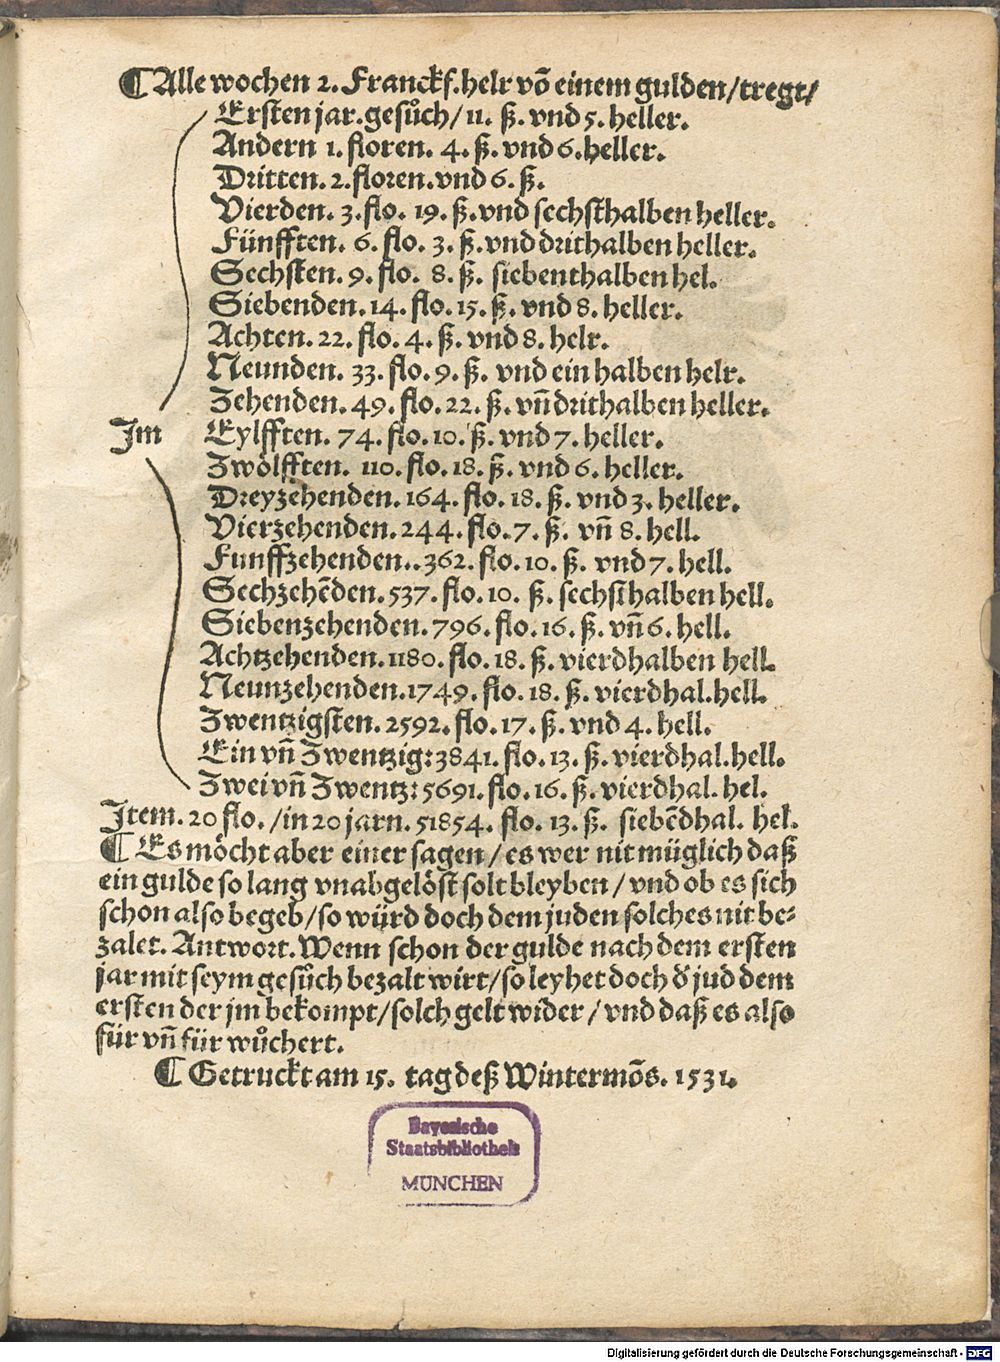 ¶ Alle wochen 2. Franckf. helr võ einem gulden / tregt /
Ersten jar. gesůch / 11. ß. vnd 5. heller.
Andern 1. floren. 4. ß. vnd 6. heller.
Dritten. 2. floren. vnd 6. ß.
Vierden. 3. flo. 19. ß. vnd sechsthalben heller.
Fünfften. 6. flo. 3. ß. vnd drithalben heller.
Sechsten. 9. flo. 8. ß. siebenthalben hel.
Siebenden. 14. flo. 15. ß. vnd 8. heller.
Achten. 22. flo. 4. ß. vnd 8. helr.
Neunden. 33. flo. 9. ß. vnd ein halben helr.
Zehenden. 49. flo. 22. ß. vñ drithalben heller.
Im Eylfften. 74. flo. 10. ß. vnd 7. heller.
Zwölfften. 110. flo. 18. ß. vnd 6. heller.
Dreyzehenden. 164. flo. 18. ß. vnd 3. heller.
Vierzehenden. 244. flo. 7. ß. vñ 8. hell.
Funffzehenden.. 362. flo. 10. ß. vnd 7. hell.
Sechzehēden. 537. flo. 10. ß. sechsthalben hell.
Siebenzehenden. 796. flo. 16. ß. vñ 6. hell.
Achtzehenden. 1180. flo. 18. ß. vierdhalben hell.
Neunzehenden. 1749. flo. 18. ß. vierdhal. hell.
Zwentzigsten. 2592. flo. 17. ß. vnd 4. hell.
Ein vñ Zwentzig: 3841. flo. 13. ß. vierdhal. hell.
Zwei vñ Zwentz: 5691. flo. 16. ß. vierdhal. hel.
Item. 20 flo. / in 20 jarn. 51854. flo. 13. ß. siebēdhal. hel.
¶ Es möcht aber einer sagen / es wer nit müglich daß
ein gulde so lang vnabgelöst solt bleyben / vnd ob es sich
schon also begeb / so würd doch dem juden solches nit be⸗
zalet. Antwort. Wenn schon der gulde nach dem ersten
jar mit seym gesůch bezalt wirt / so leyhet doch d̓ jud dem
ersten der jm bekompt / solch gelt wider / vnd daß es also
für vñ für wůchert.
¶ Getruckt am 15. tag deß Wintermõs. 1531.
Bayerische
Staatsbibliothek
MÜNCHEN
Digitalisierung gefördert durch die Deutsche Forschungsgemeinschaft - DFG